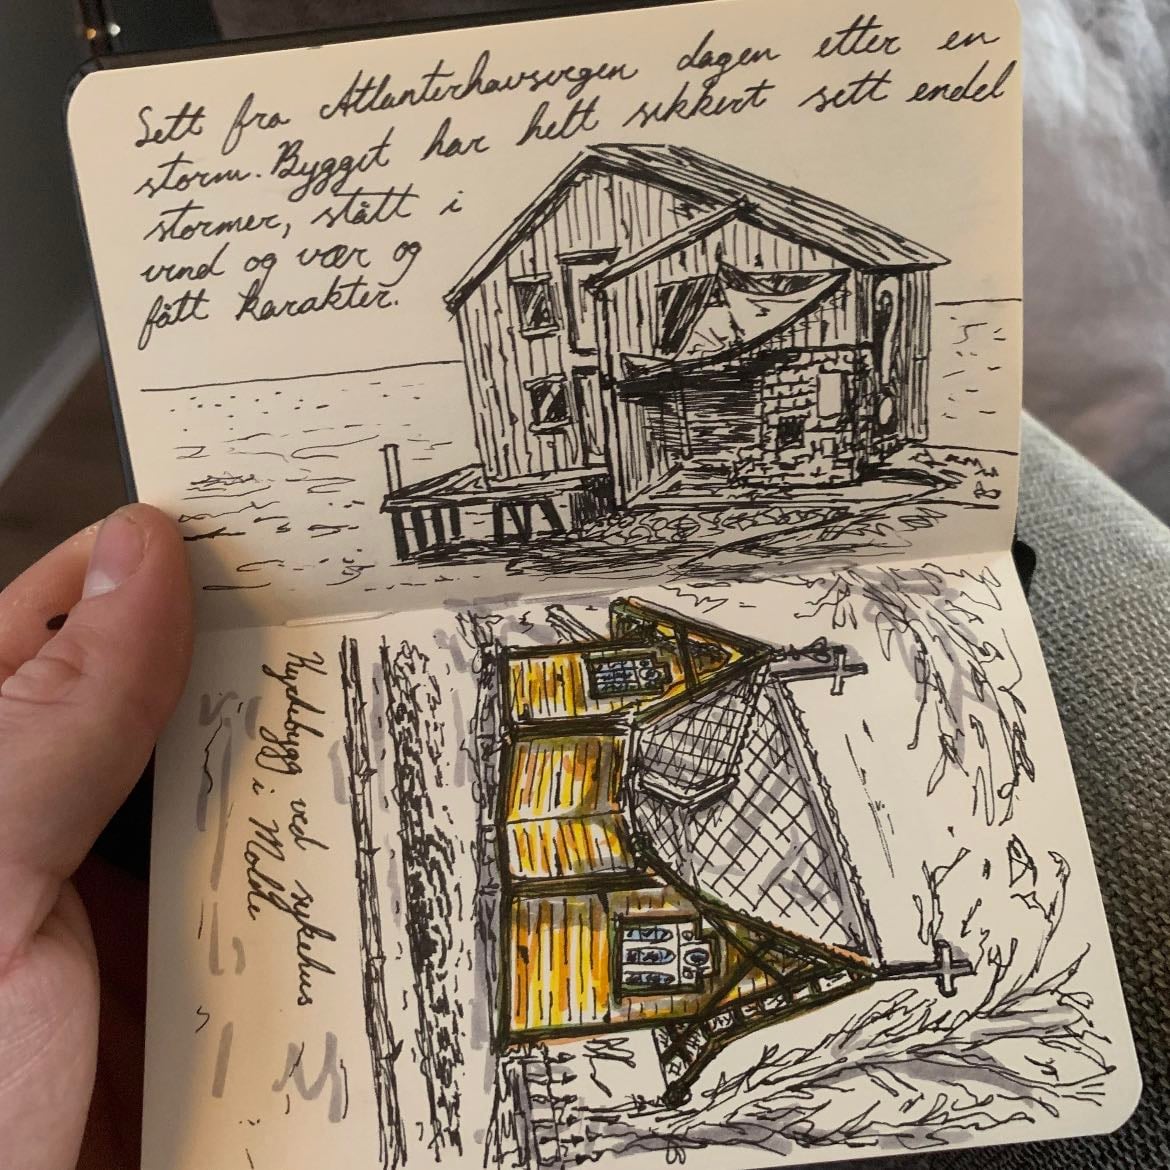 Sett fra Atlanterhavsvegen dagen etter en
storm. Bygget har helt sikkert sett endel
stormer, stått i
vind og vær og
fått karakter.
ved sykehus
i Molde